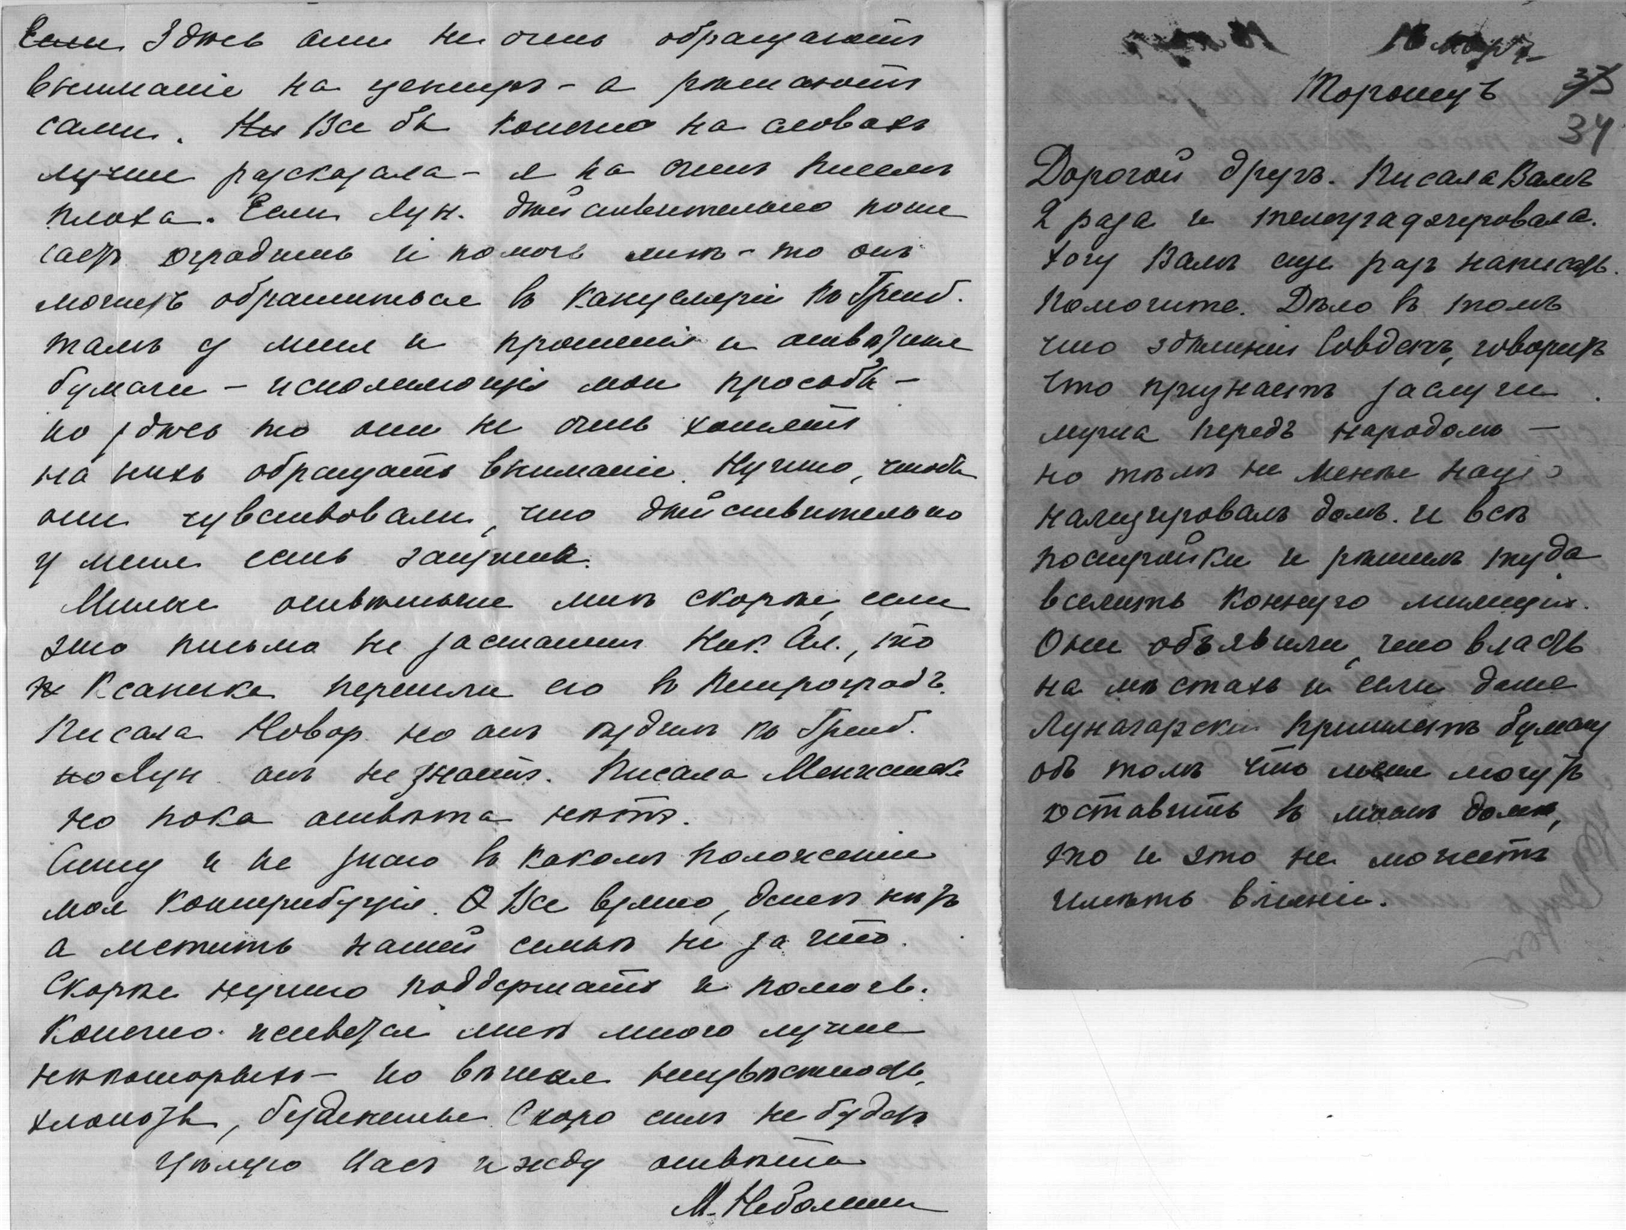 18 март
Торопецъ 33
34
Дорогой другъ. Писала Вамъ
2 раза и телеграфировала.
Хочу Вамъ еще разъ написать.
Помогите. Дѣло въ томъ
что здѣшній Совдепъ, говоритъ
что признаетъ заслуги
мужа передъ народомъ –
но тѣмъ не менѣе націо
нализировалъ домъ. и всѣ
постройки и рѣшилъ туда
вселить Конную милицію.
Они объявили, что власть
на мѣстахъ и если даже
Луначарскій пришлетъ бумагу
объ томъ что меня могутъ
оставить въ моемъ домѣ,
то и это не можетъ
имѣть вліяніе.
Если Здѣсь они не очень обращаютъ
вниманіе на центръ – а рѣшаютъ
сами. Не Все бы конечно на словахъ
лучше расказала – я на счетъ писемъ
плоха. Если Лун. дѣйствительно поже
лаетъ оградить и помочь мнѣ – то онъ
можетъ обратиться въ Канцелярію къ Гриб.
тамъ у меня и прошенія и отвѣтныя
бумаги – исполняющія мои просьбы –
но здѣсь то они не очень хотятъ
на нихъ обращать вниманіе. Нужно, чтобы
они чувствовали, что дѣйствительно
у меня есть защита.
Милые отвѣтьте мнѣ скорѣе, если
это письмо не застанетъ Ник. Ал., то
Ксаничка перешли его въ Петроградъ.
Писала Новор. но онъ ѣздилъ къ Гриб.
но Лун. онъ не знаетъ. Писала Менжинск.
но пока отвѣта нѣтъ.
Сижу и не знаю въ какомъ положеніи
моя контрибуція. Все взято, денегъ нѣтъ
а мстить нашей семьѣ не за что.
Скорѣе нужно поддержать и помочь.
Конечно живется мнѣ много лучше
нѣкоторыхъ – но вѣчная неизвѣстность,
хлопоты, безденежье. Скоро силъ не будетъ
Цѣлую Васъ и жду отвѣта
М. Неболсина